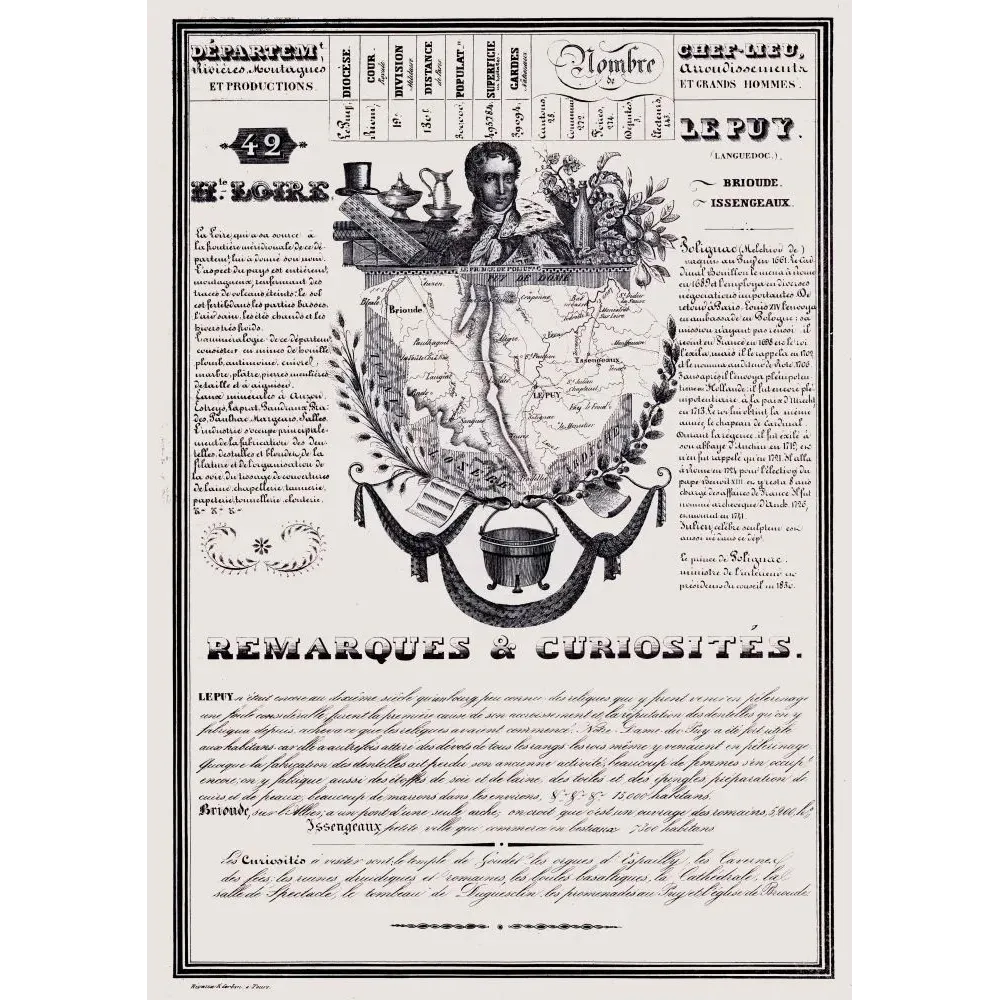 DÉPARTEM.t
Rivières, Montagnes
ET PRODUCTIONS.
DIOCÈSE.
Le Puy.
COUR.
Royale
Riom.
DIVISION
Militaire
19.e
DISTANCE
de Paris
130 l.
POPULAT.on
SUPERFICIE
495784.
GARDES
Nationaux
39094.
Nombre
de
Cantons,
28.
Communes
272.
Foires,
274.
Députés
3.
Électeurs,
CHEF-LIEU,
Arrondissements
ET GRANDS HOMMES.
42
H.te LOIRE.
La Loire, qui a sa source à
la frontière méridionale de ce dé-
partem.t lui a donné son nom.
L'aspect du pays est entièrem.t
montagneux, renfermant des
traces de volcans éteints; le sol
est fertil dans les parties basses.
l'air sain, les étés chauds et les
hivers très froids.
La minéralogie de ce départem.t
consistent en mines de houille,
plomb, antimoine, cuivre,
marbre, plâtre, pierres meulières
de taille et à aiguiser.
Eaux minérales à Auzon,
Estreys, Laprat, Bandaux, Pra-
des, Paulhac, Margeaix, Salles.
L'industrie s'occupe principale-
ment de la fabrication des den-
telles, des tulles et blondes, de la
filature et de l'organisation de
la soie, du tissage de couvertures
de laine, chapellerie, tannerie,
papeterie, tonnellerie, clouterie,
&.a &.a &.a
LE PUY.
(LANGUEDOC.)
BRIOUDE.
ISSENGEAUX.
Polignac (Melchior de)
naquit au Puy en 1661. Le Car-
dinal Bouillon le mena à Rome
en 1689 et l'employa en diverses
négociations importantes. De
retour à Paris, Louis XIV l'envoya
en ambassade en Pologne; sa
mission n'ayant pas réussi, il
revint en France en 1698 et le roi
l'exila, mais il le rappela en 1702
et le nomma auditeur de Rote, 1706.
3 ans après il l'envoya plénipoten-
tiaire en Hollande, il fut encore plé-
nipotentiaire à la paix d'Utrecht
en 1713. Le roi lui obtint la même
année le chapeau de Cardinal.
Durant la régence, il fut exilé à
son abbaye d'Anchin en 1719, et
n'en fut rappelé qu'en 1721. Il alla
à Rome en 1724 pour l'élection du
pape Benoit XIII et y resta 8 ans
chargé des affaires de France. Il fut
nommé archevêque d'Auch 1726,
et mourut en 1741.
Julien, célèbre sculpteur est
aussi né dans ce dép.t
Le prince de Polignac.
ministre de l'intérieur et
président du conseil en 1830.
LE PRINCE DE POLIGNAC
PUY DE DOME
Auzon.
Brioude.
Craponne
Paulhaguet
Allègre
Monistrol
Montfaucon
Issengeaux
Langeac
St. Paulien
LE PUY
St. Julien
Chapteuil
Fay le Froid
Le Monastier
Solignac
Saugues
LOZÈRE
ARDÈCHE
REMARQUES & CURIOSITÉS.
LE PUY n'était encore au dixième siècle qu'un bourg peu connu des reliques qui y firent venir en pèlerinage
une foule considérable furent la première cause de son accroissement et la réputation des dentelles qu'on y
fabriqua depuis, acheva ce que les reliques avaient commencé. Notre-Dame du Puy a été fort utile
aux habitans car elle a autrefois attiré des dévots de tous les rangs les rois même y venaient en pèlerinage
Quoique la fabrication des dentelles ait perdu son ancienne activité, beaucoup de femmes s'en occup.t
encore, on y fabrique aussi des étoffes de soie et de laine, des toiles et des épingles, préparation de
cuirs et de peaux, beaucoup de marrons dans les environs, &.a &.a &.a 15,000 habitans.
Brioude, sur l'Allier, a un pont d'une seule arche; on croit que c'est un ouvrage des romains, 5,200, h.ts
Issengeaux, petite ville qui commerce en bestiaux 7300 habitans
Les Curiosités à visiter sont, le temple de Goudet les orgues d'Espailly, les Cavernes
des fées, les ruines druidiques et romaines, les boules basaltiques, la Cathédrale, la
salle de Spectacle, le tombeau de Duguesclin, les promenades au Puy et l'église de Brioude.